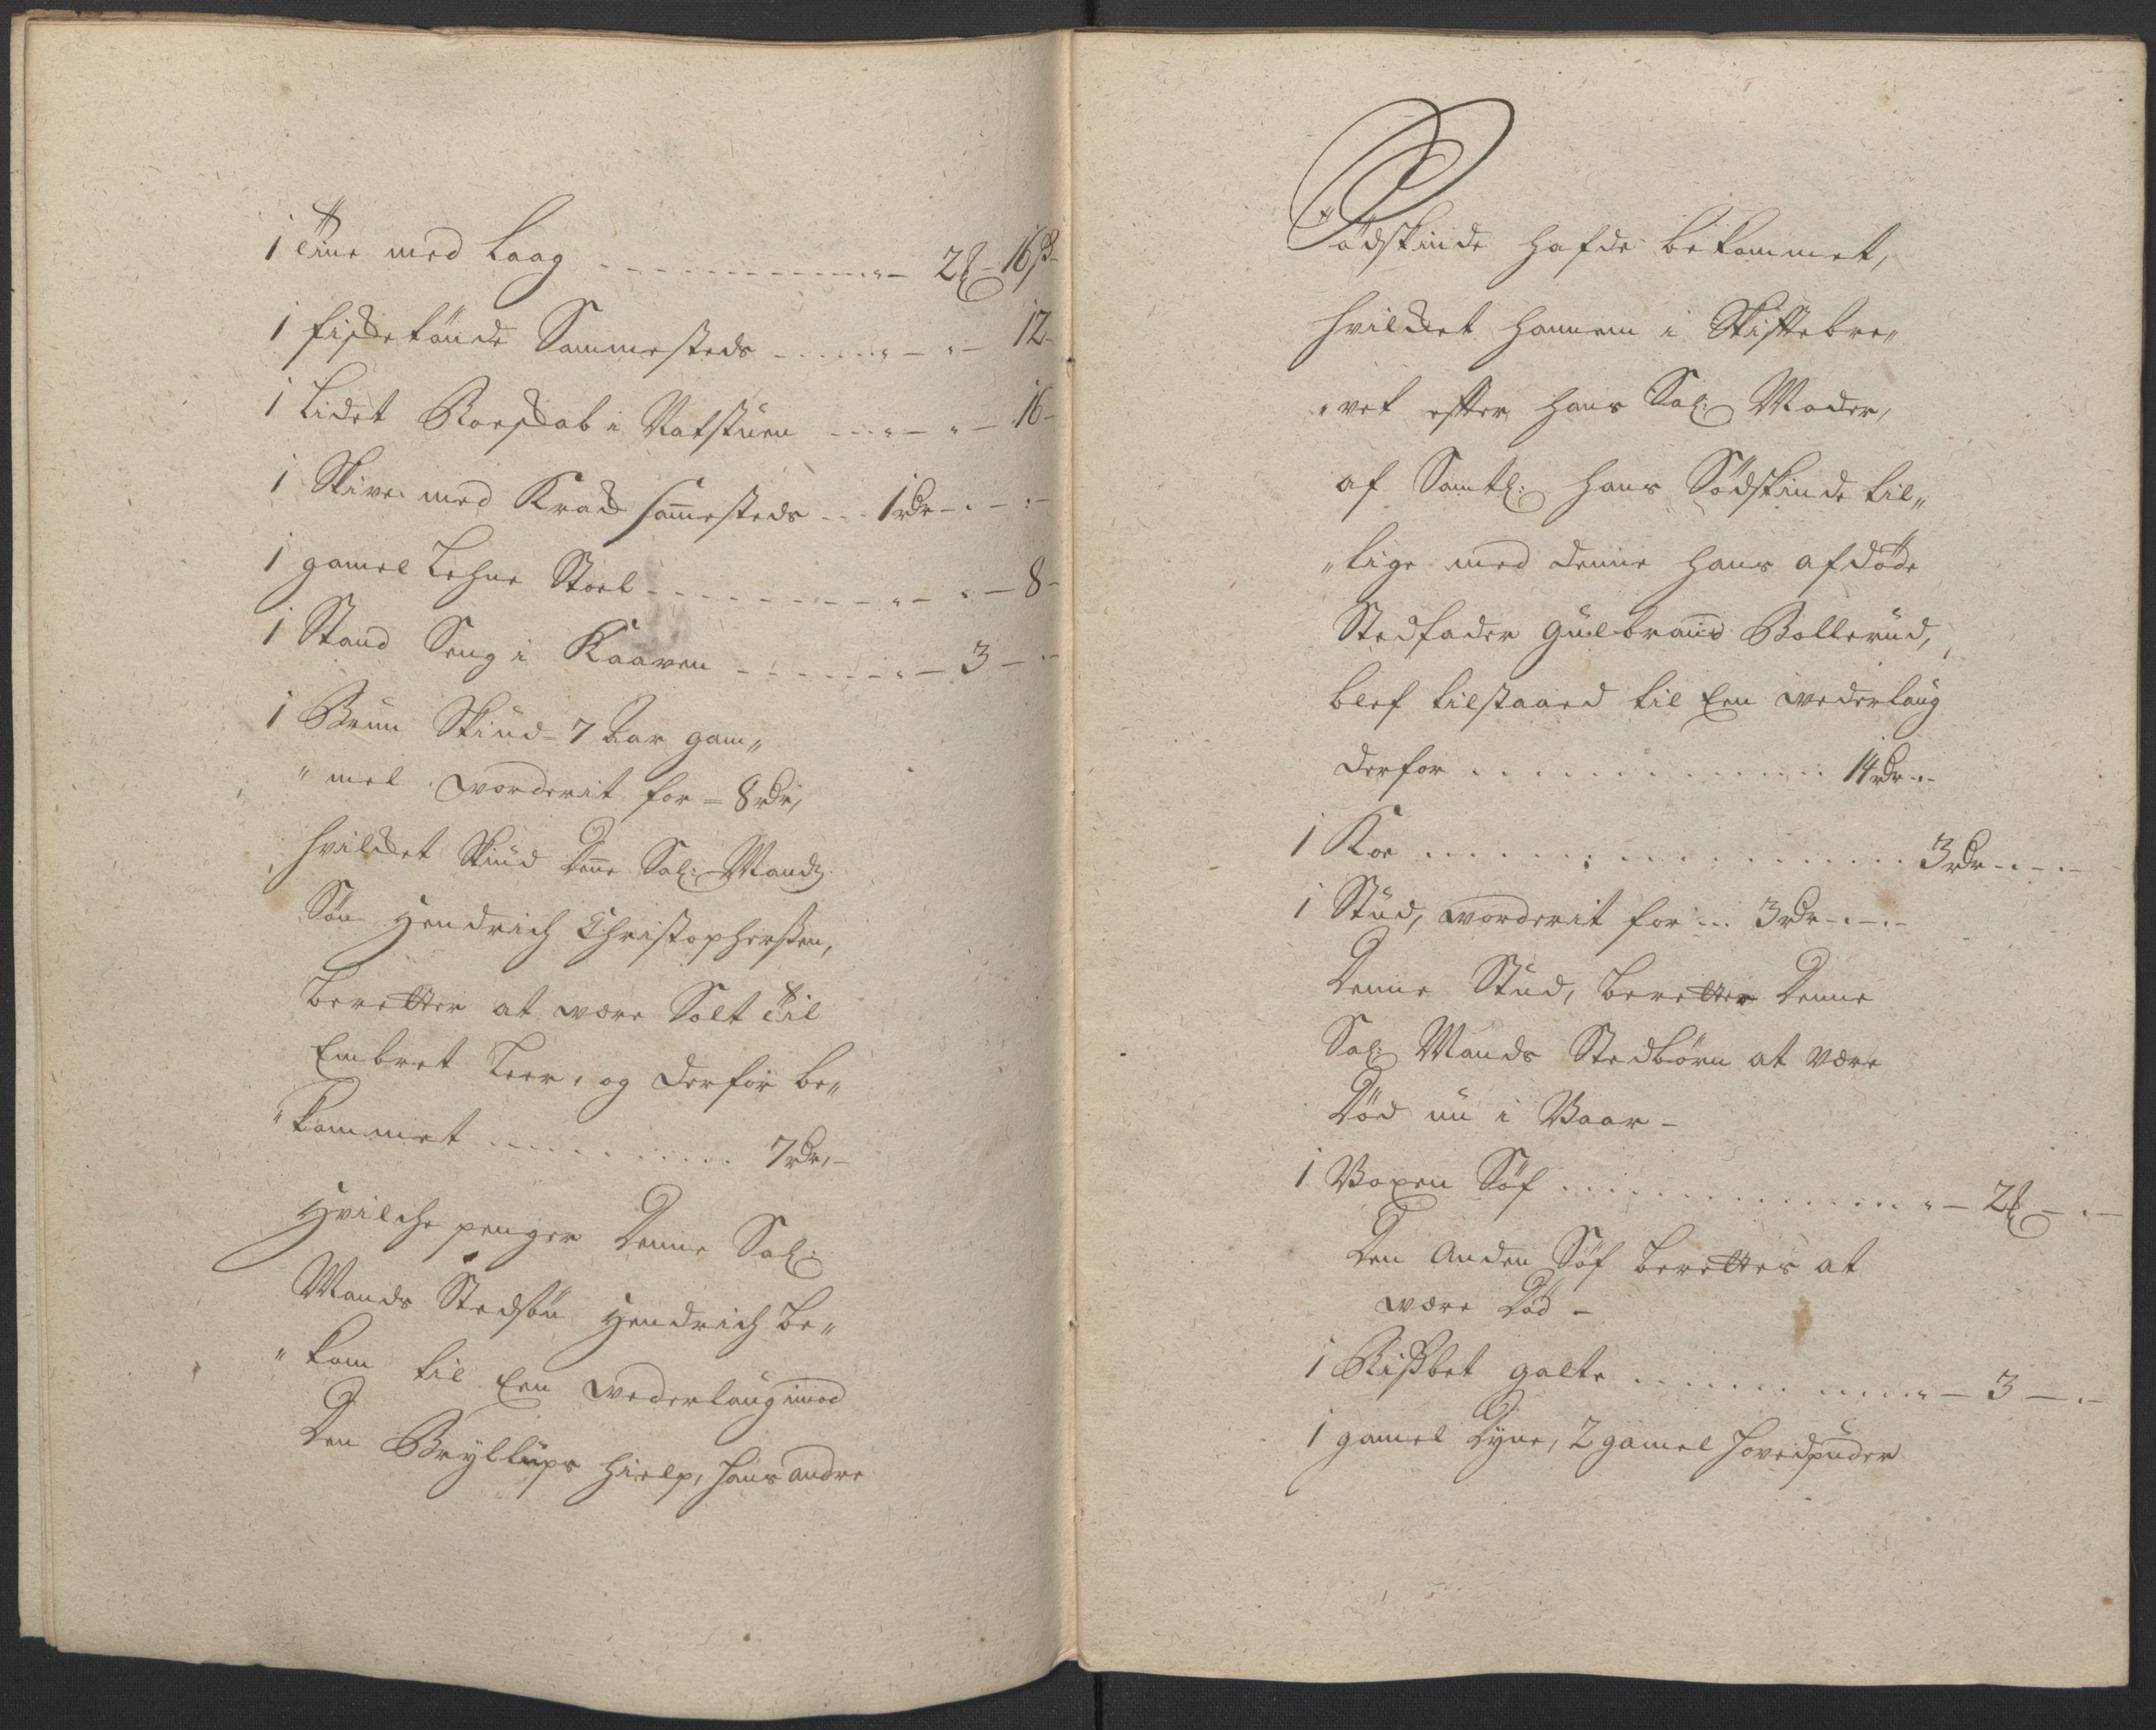 1 Tine med Laag - - - - - - - - - - - „ - 2 - 16 β
1 fiskekande Sammesteds - - - - „ - „ - 12 -
1 Lidet Korskab i Natstuen - - - „ - „ - 16 -
1 Skive med Krak sammesteds - - - 1 rdr - „ - „ -
1 gamel Lehne Stoel - - - - - - - - „ - „ - 8 -
1 Stand Seng i Kaaven - - - - - - „ - 3 - „ -
1 Brun Skiud - 7 Aar gam„
„mel vorderit for = 8 rdr,
hvilket Skiud denne Sal: Mands
Søn Hendrich Christophersen,
beretter at være Solt til
Embret Leer, og derfor be„
„kommet - - - - - - - - - - 7 rdr, -
Hvilche penger denne Sal:
Mands Stedsøn Hendrich be„
„kom til een vederlaug imod
den Bryllups hielp, hans andre
Sødskinde hafde bekommet,
hvilket hannem i Skiftebre„
„vet efter hans Sal: Moder,
af Samtl: hans Sødskinde til„
„lige med denne hans afdøde
Stedfader Gulbrand Bollerud,
blef tilstaaed til een vederlaug
derfor . . . . . . . . . . . . . 14 rdr „ -
1 Koe . . . . . . . . . . . . . . . . . 3 rdr - „ - „ -
1 Stud, vorderit for ... 3 rdr - „ - „ -
denne Stud, beretter denne
Sal: Mands Stedbørn at være
død nu i Vaar -
1 Voxen Søf . . . . . . . . . . . . . . „ - 2 - „ -
den anden Søf berettes at
være død -
1 Rissbet galte . . . . . . . . . . . „ - 3 - „ -
1 gamel dyne, 2 gamel hovedpuder